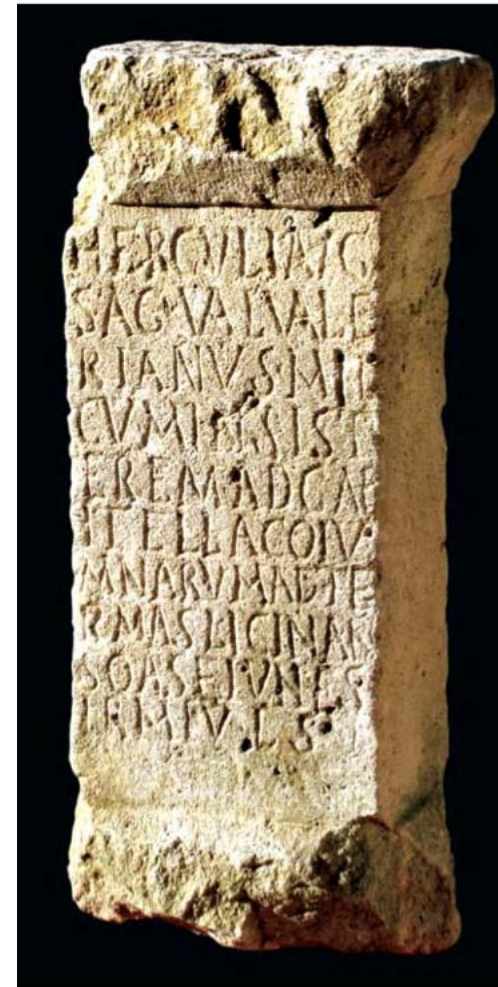 HERCVLI AVG
SAC·VAL VALE
RIANVS·MIL
CVM INSIST
EREM AD CAP
ITELLA COLV
MNARVM AD TE
RMAS
IRMI V L S